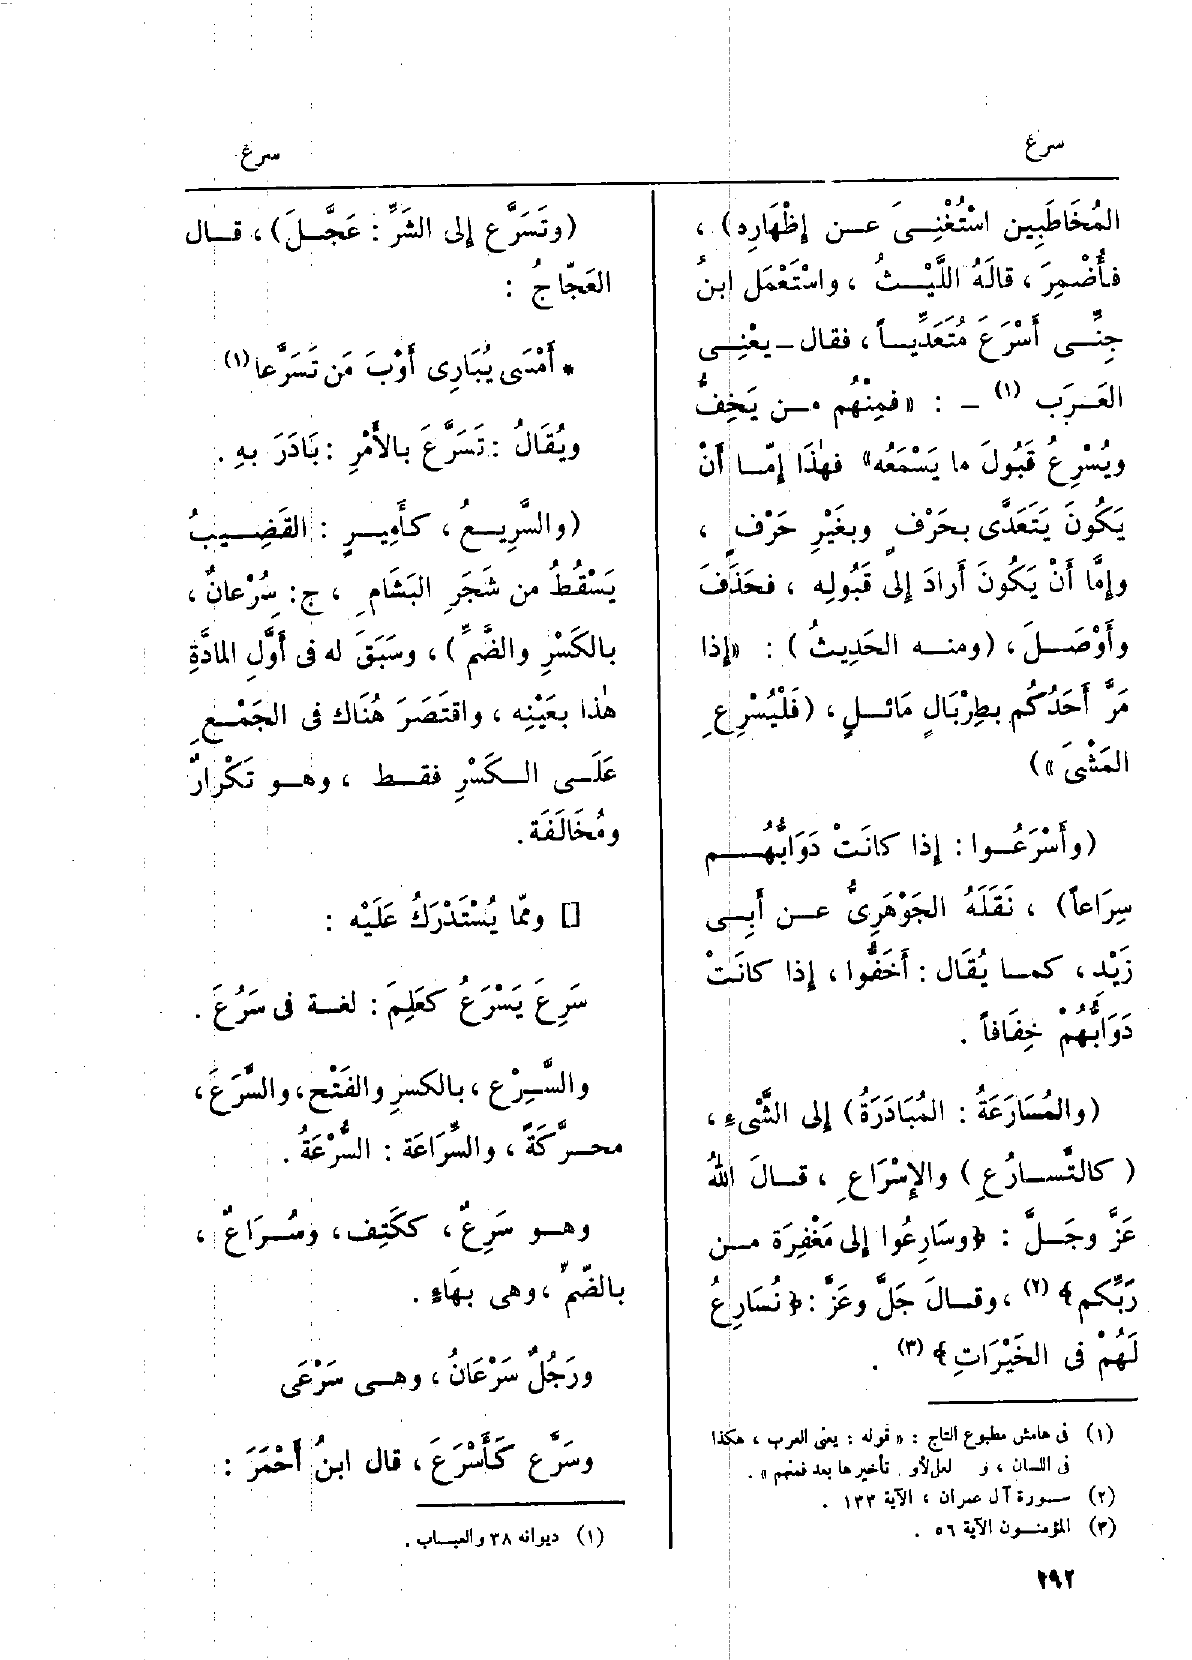 سرع
سرع
المُخَاطَبِين اسْتُغْنِــىَ عــن إظْهَارِه) ،
فأُضْمِرَ ، قالَهُ اللَّيْــثُ ، واسْتَعْمَل ابنُ
جِنِّــى أَسْرَعَ مُتَعَدِّيــاً ، فقال ــ يعْنِــى
العَــرَب (١) ــ : « فمِنْهُم مــن يَخِفُّ
ويُسْرِعُ قَبُولَ ما يَسْمَعُه» فهٰذَا إمّــا أَنْ
يَكُونَ يَتَعَدَّى بحَرْفٍ وبغَيْرِ حَرْفٍ ،
وإمَّا أَنْ يَكُونَ أَرادَ إلى قَبُولِه ، فحَذَفَ
وأَوْصَــلَ ، (ومنــه الحَدِيثُ) : «إذا
مَرَّ أَحَدُكُم بطِرْبَالٍ مَائــلٍ ، (فَلْيُسْرِعِ
المَشْىَ »)
(وأَسْرَعُــوا : إذا كانَتْ دَوَابُّهُــم
سِرَاعاً) ، نَقَلَهُ الجَوْهَرِىُّ عــن أَبِــى
زَيْدٍ ، كمــا يُقَال : أَخَفُّوا ، إذا كانَتْ
دَوَابُّهُمْ خِفَافاً .
(والمُسَارَعَةُ : المُبَادَرَةُ) إلى الشَّىءِ ،
(كالتَّســارُعِ) والإسْرَاعِ ، قــالَ اللهُ
عَزَّ وجَــلَّ : ﴿وسَارِعُوا إلى مَغْفِرَة مــن
رَبِّكم﴾ (٢) ، وقــالَ جَلَّ وعَزَّ : ﴿ نُسَارِعُ
لَهُمْ فى الخَيْرَاتِ﴾ (٣) .
(١) فى هامش مطبوع التاج : « قوله : يعنى العرب ، هكذا
فى اللسان ، و لعل تأخيرها بعد فمنهم » .
(٢) ســورة آل عمران ، الآية ١٣٣ .
(٣) المؤمنــون الآية ٥٦ .
٢٩٢
(وتَسَرَّع إلى الشَرِّ : عَجَّــلَ) ، قــال
العَجّاجُ :
* أَمْسَى يُبَارِى أَوْبَ مَن تَسَرَّعا (١)
ويُقَالُ : تَسَرَّعَ بالأَمْرِ : بَادَرَ بهِ .
(والسَّرِيعُ ، كــأَمِيــرٍ : القَضِــيبُ
يَسْقُطُ من شَجَرِ البَشَامِ ، ج : سُرْعانٌ ،
بالكَسْرِ والضَّمِّ) ، وسَبَقَ له فى أَوَّلِ المادَّةِ
هٰذا بعَيْنِه ، واقتَصَرَ هُنَاك فى الجَمْــعِ
عَلَــى الــكَسْرِ فقــط ، وهــو تَكْرارٌ
ومُخَالَفَة .
[] وممّا يُسْتَدْرَكُ عَلَيْه :
سَرِعَ يَسْرَعُ كعَلِمَ : لغــة فى سَرُعَ .
والسَّرْع ، بالكسرِ والفَتْح ، والسَّرَعَ ،
محــرَّكَةً ، والسَّرَاعَة : السُّرْعَةُ .
وهــو سَرِعٌ ، ككَتِف ، وسُــرَاعٌ ،
بالضَّمِّ ، وهى بهَاءٍ .
ورَجُلٌ سَرْعَانُ ، وهــى سَرْعَى
وسَرَّع كَأَسْرَعَ ، قال ابنُ أَحْمَرَ :
(١) ديوانه ٣٨ والعبــاب .